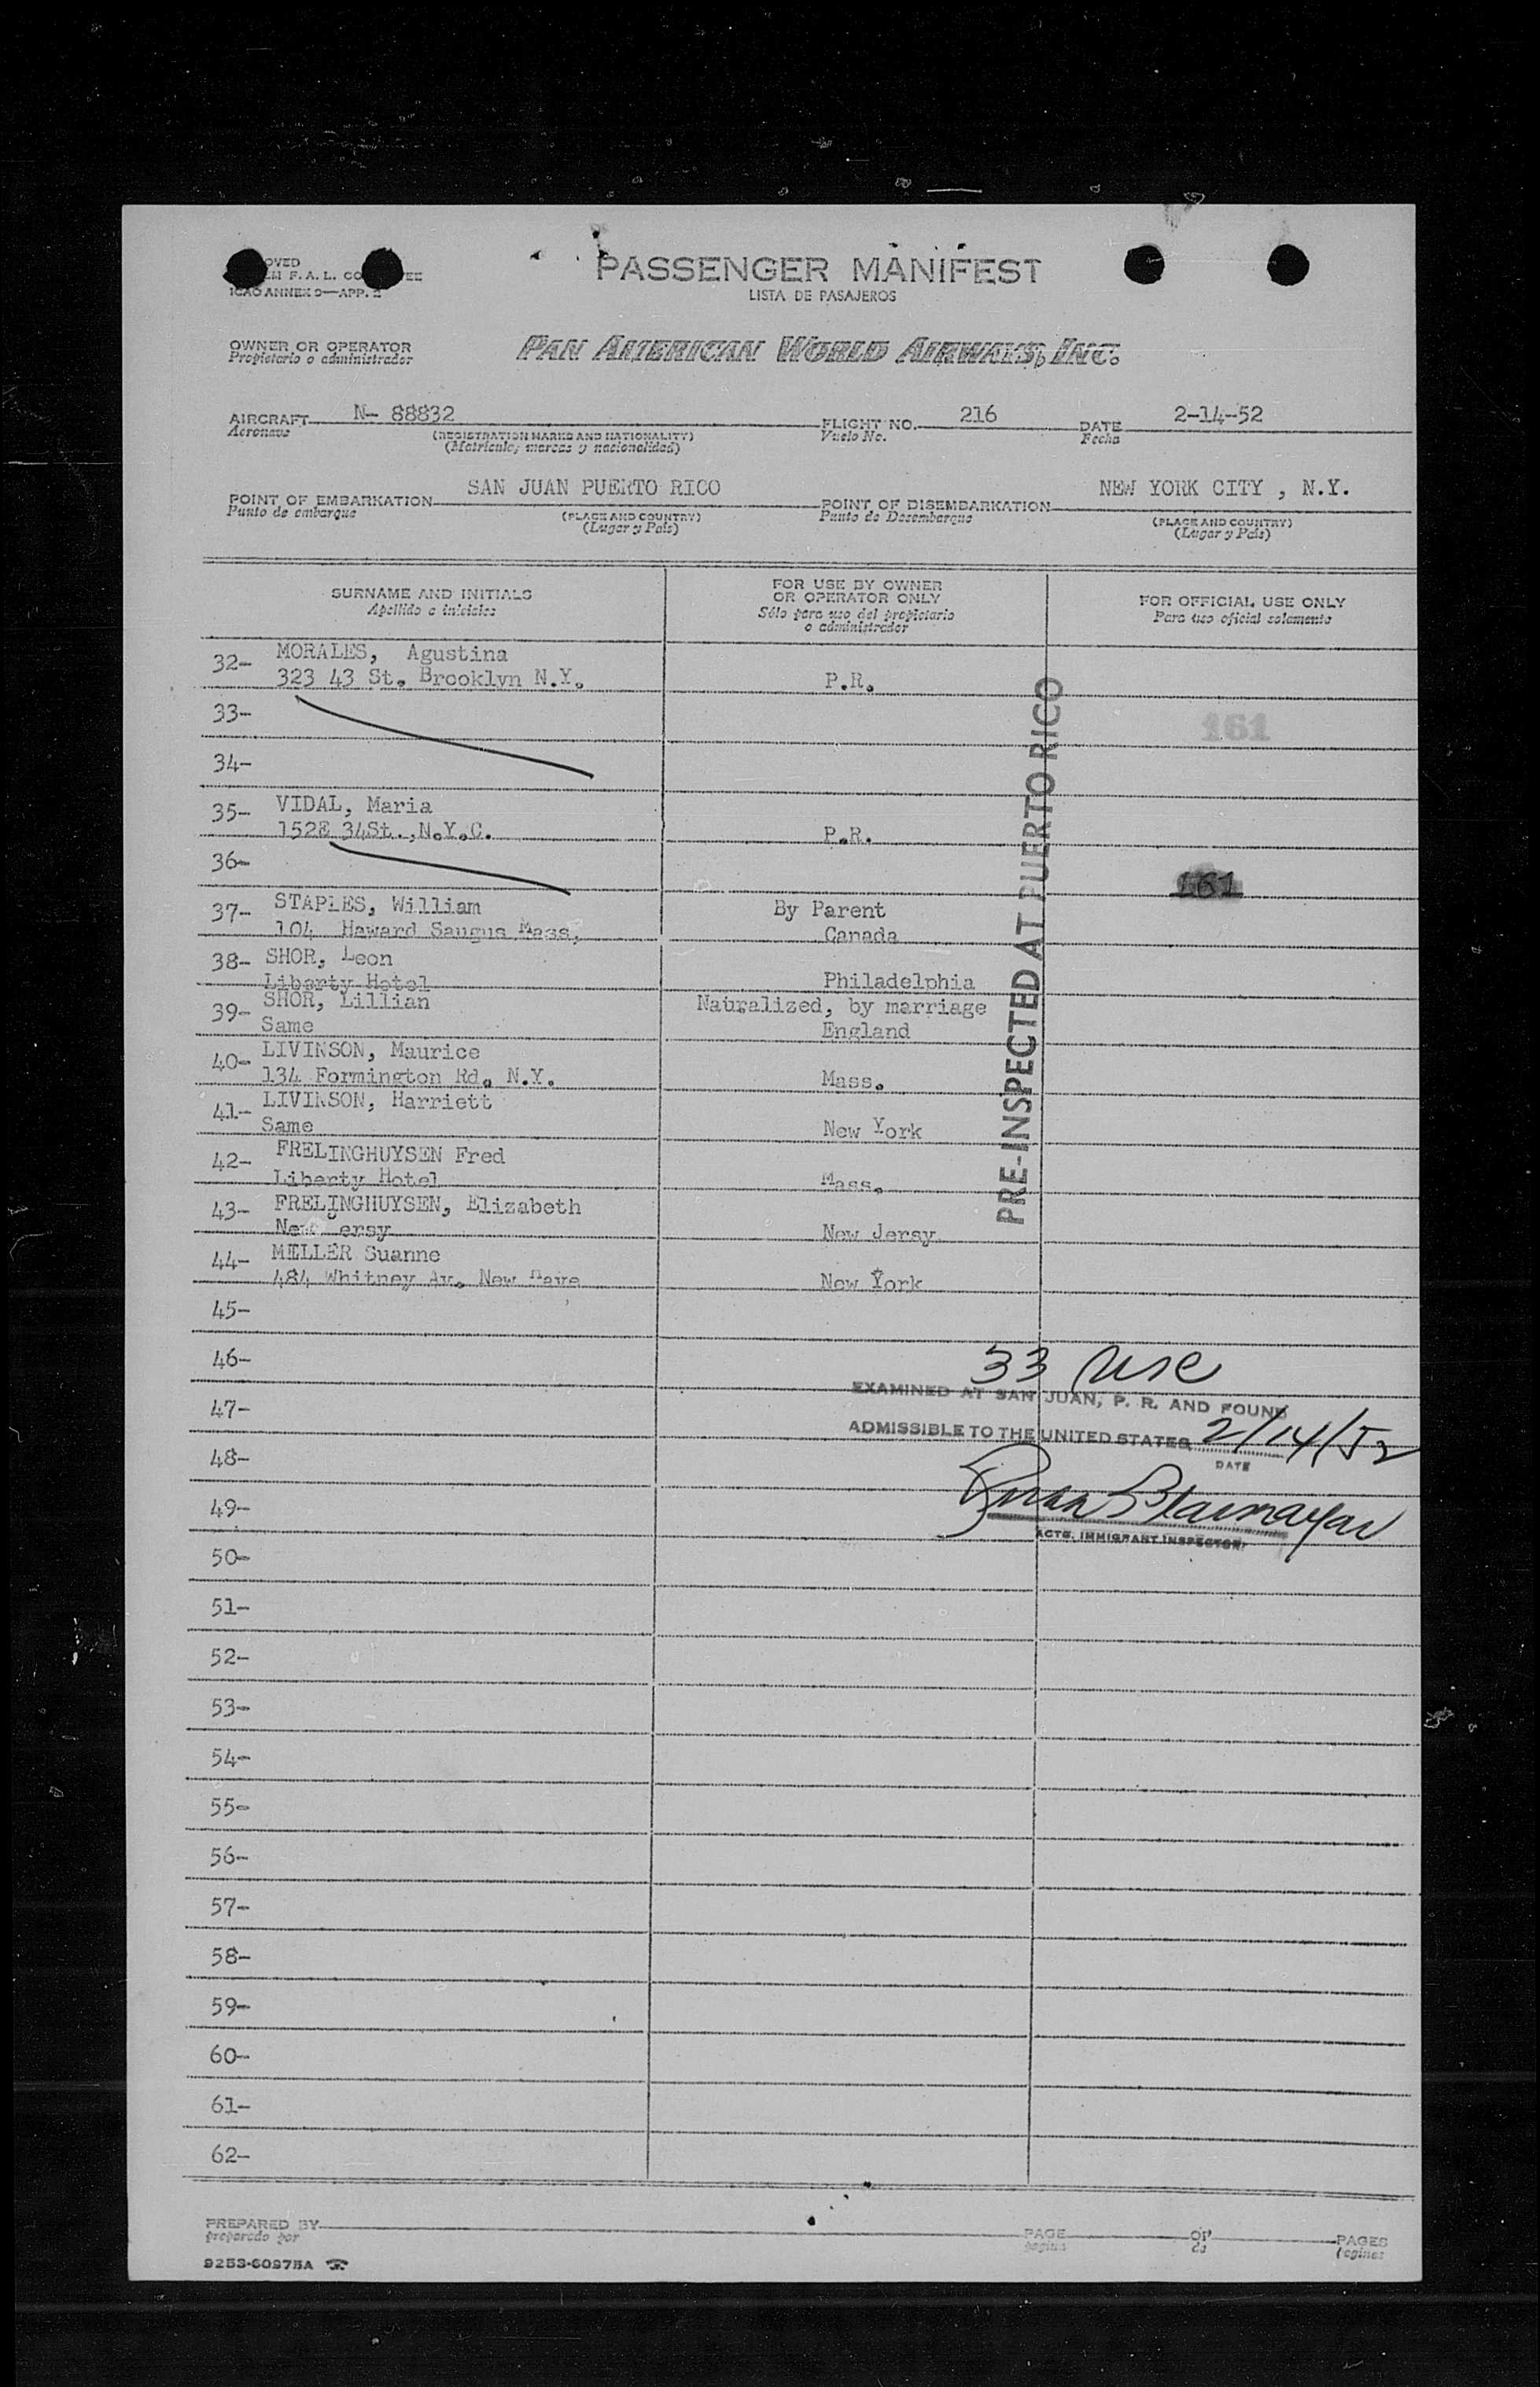 PASSENGER MANIFEST
LISTA DE PASAJEROS
ICAO ANNEX 9—APP. 2
OWNER OR OPERATOR
Propietario o administrador
PAN AMERICAN WORLD AIRWAYS, INC.
AIRCRAFT N- 88832 FLIGHT NO. 216 DATE 2-14-52
Aeronave (REGISTRATION MARKS AND NATIONALITY) Vuelo No. Fecha
(Matricula, marcas y nacionalidad)
POINT OF EMBARKATION SAN JUAN PUERTO RICO POINT OF DISEMBARKATION NEW YORK CITY , N.Y.
Punto de embarque (PLACE AND COUNTRY) Punto de Desembarque (PLACE AND COUNTRY)
(Lugar y País) (Lugar y País)
SURNAME AND INITIALS FOR USE BY OWNER OR OPERATOR ONLY FOR OFFICIAL USE ONLY
Apellido e iniciales Sólo para uso del propietario o administrador Para uso oficial solamente
32- MORALES, Agustina
323 43 St. Brooklyn N.Y. P.R.
33- 161
34-
35- VIDAL, Maria
152E 34St.,N.Y.C. P.R.
36- 161
37- STAPLES, William By Parent
104 Haward Saugus Mass, Canada
38- SHOR, Leon
Liberty Hotel Philadelphia
39- SHOR, Lillian Natralized, by marriage
Same England
40- LIVINSON, Maurice
134 Formington Rd. N.Y. Mass.
41- LIVINSON, Harriett
Same New York
42- FRELINGHUYSEN Fred
Liberty Hotel Mass.
43- FRELINGHUYSEN, Elizabeth
New Jersy New Jersy
44- MELLER Suanne
484 Whitney Av. New Have New York
PRE-INSPECTED AT PUERTO RICO
45-
46- 33 usc
EXAMINED AT SAN JUAN, P. R. AND FOUND
47-
ADMISSIBLE TO THE UNITED STATES 2/14/52
48- DATE
49-
ACTG. IMMIGRANT INSPECTOR
50-
51-
52-
53-
54-
55-
56-
57-
58-
59-
60-
61-
62-
PREPARED BY PAGE OF PAGES
preparado por pagina de
9253-60975A